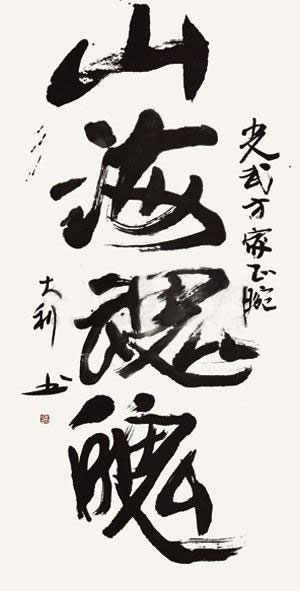 武方家正腕
山海魂魄
大利书